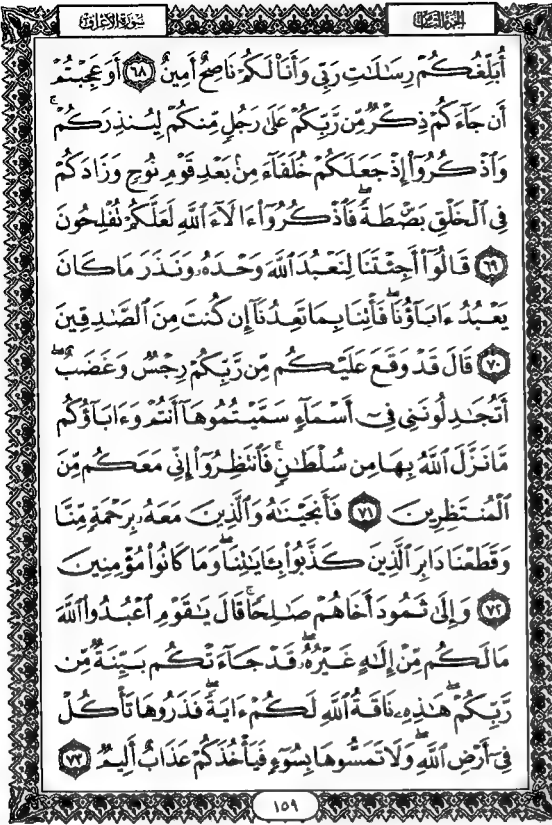 سورة الأعراف
الجزء الثامن
أُبَلِّغُكُمْ رِسَالَاتِ رَبِّي وَأَنَا۠ لَكُمْ نَاصِحٌ أَمِينٌ ٦٨ أَوَعَجِبْتُمْ
أَن جَآءَكُمْ ذِكْرٌ مِّن رَّبِّكُمْ عَلَىٰ رَجُلٍ مِّنكُمْ لِيُنذِرَكُمْ ۚ
وَٱذْكُرُوٓا۟ إِذْ جَعَلَكُمْ خُلَفَآءَ مِنۢ بَعْدِ قَوْمِ نُوحٍ وَزَادَكُمْ
فِى ٱلْخَلْقِ بَصْۜطَةً ۖ فَٱذْكُرُوٓا۟ ءَالَآءَ ٱللَّهِ لَعَلَّكُمْ تُفْلِحُونَ
٦٩ قَالُوٓا۟ أَجِئْتَنَا لِنَعْبُدَ ٱللَّهَ وَحْدَهُۥ وَنَذَرَ مَا كَانَ
يَعْبُدُ ءَابَآؤُنَا ۖ فَأْتِنَا بِمَا تَعِدُنَآ إِن كُنتَ مِنَ ٱلصَّـٰدِقِينَ
٧٠ قَالَ قَدْ وَقَعَ عَلَيْكُم مِّن رَّبِّكُمْ رِجْسٌ وَغَضَبٌ ۖ
أَتُجَـٰدِلُونَنِى فِىٓ أَسْمَآءٍ سَمَّيْتُمُوهَآ أَنتُمْ وَءَابَآؤُكُم
مَّا نَزَّلَ ٱللَّهُ بِهَا مِن سُلْطَـٰنٍ ۚ فَٱنتَظِرُوٓا۟ إِنِّى مَعَكُم مِّنَ
ٱلْمُنتَظِرِينَ ٧١ فَأَنجَيْنَـٰهُ وَٱلَّذِينَ مَعَهُۥ بِرَحْمَةٍ مِّنَّا
وَقَطَعْنَا دَابِرَ ٱلَّذِينَ كَذَّبُوا۟ بِـَٔايَـٰتِنَا ۖ وَمَا كَانُوا۟ مُؤْمِنِينَ
٧٢ وَإِلَىٰ ثَمُودَ أَخَاهُمْ صَـٰلِحًا ۗ قَالَ يَـٰقَوْمِ ٱعْبُدُوا۟ ٱللَّهَ
مَا لَكُم مِّنْ إِلَـٰهٍ غَيْرُهُۥ ۖ قَدْ جَآءَتْكُم بَيِّنَةٌ مِّن
رَّبِّكُمْ ۖ هَـٰذِهِۦ نَاقَةُ ٱللَّهِ لَكُمْ ءَايَةً ۖ فَذَرُوهَا تَأْكُلْ
فِىٓ أَرْضِ ٱللَّهِ ۖ وَلَا تَمَسُّوهَا بِسُوٓءٍ فَيَأْخُذَكُمْ عَذَابٌ أَلِيمٌ ٧٣
١٥٩